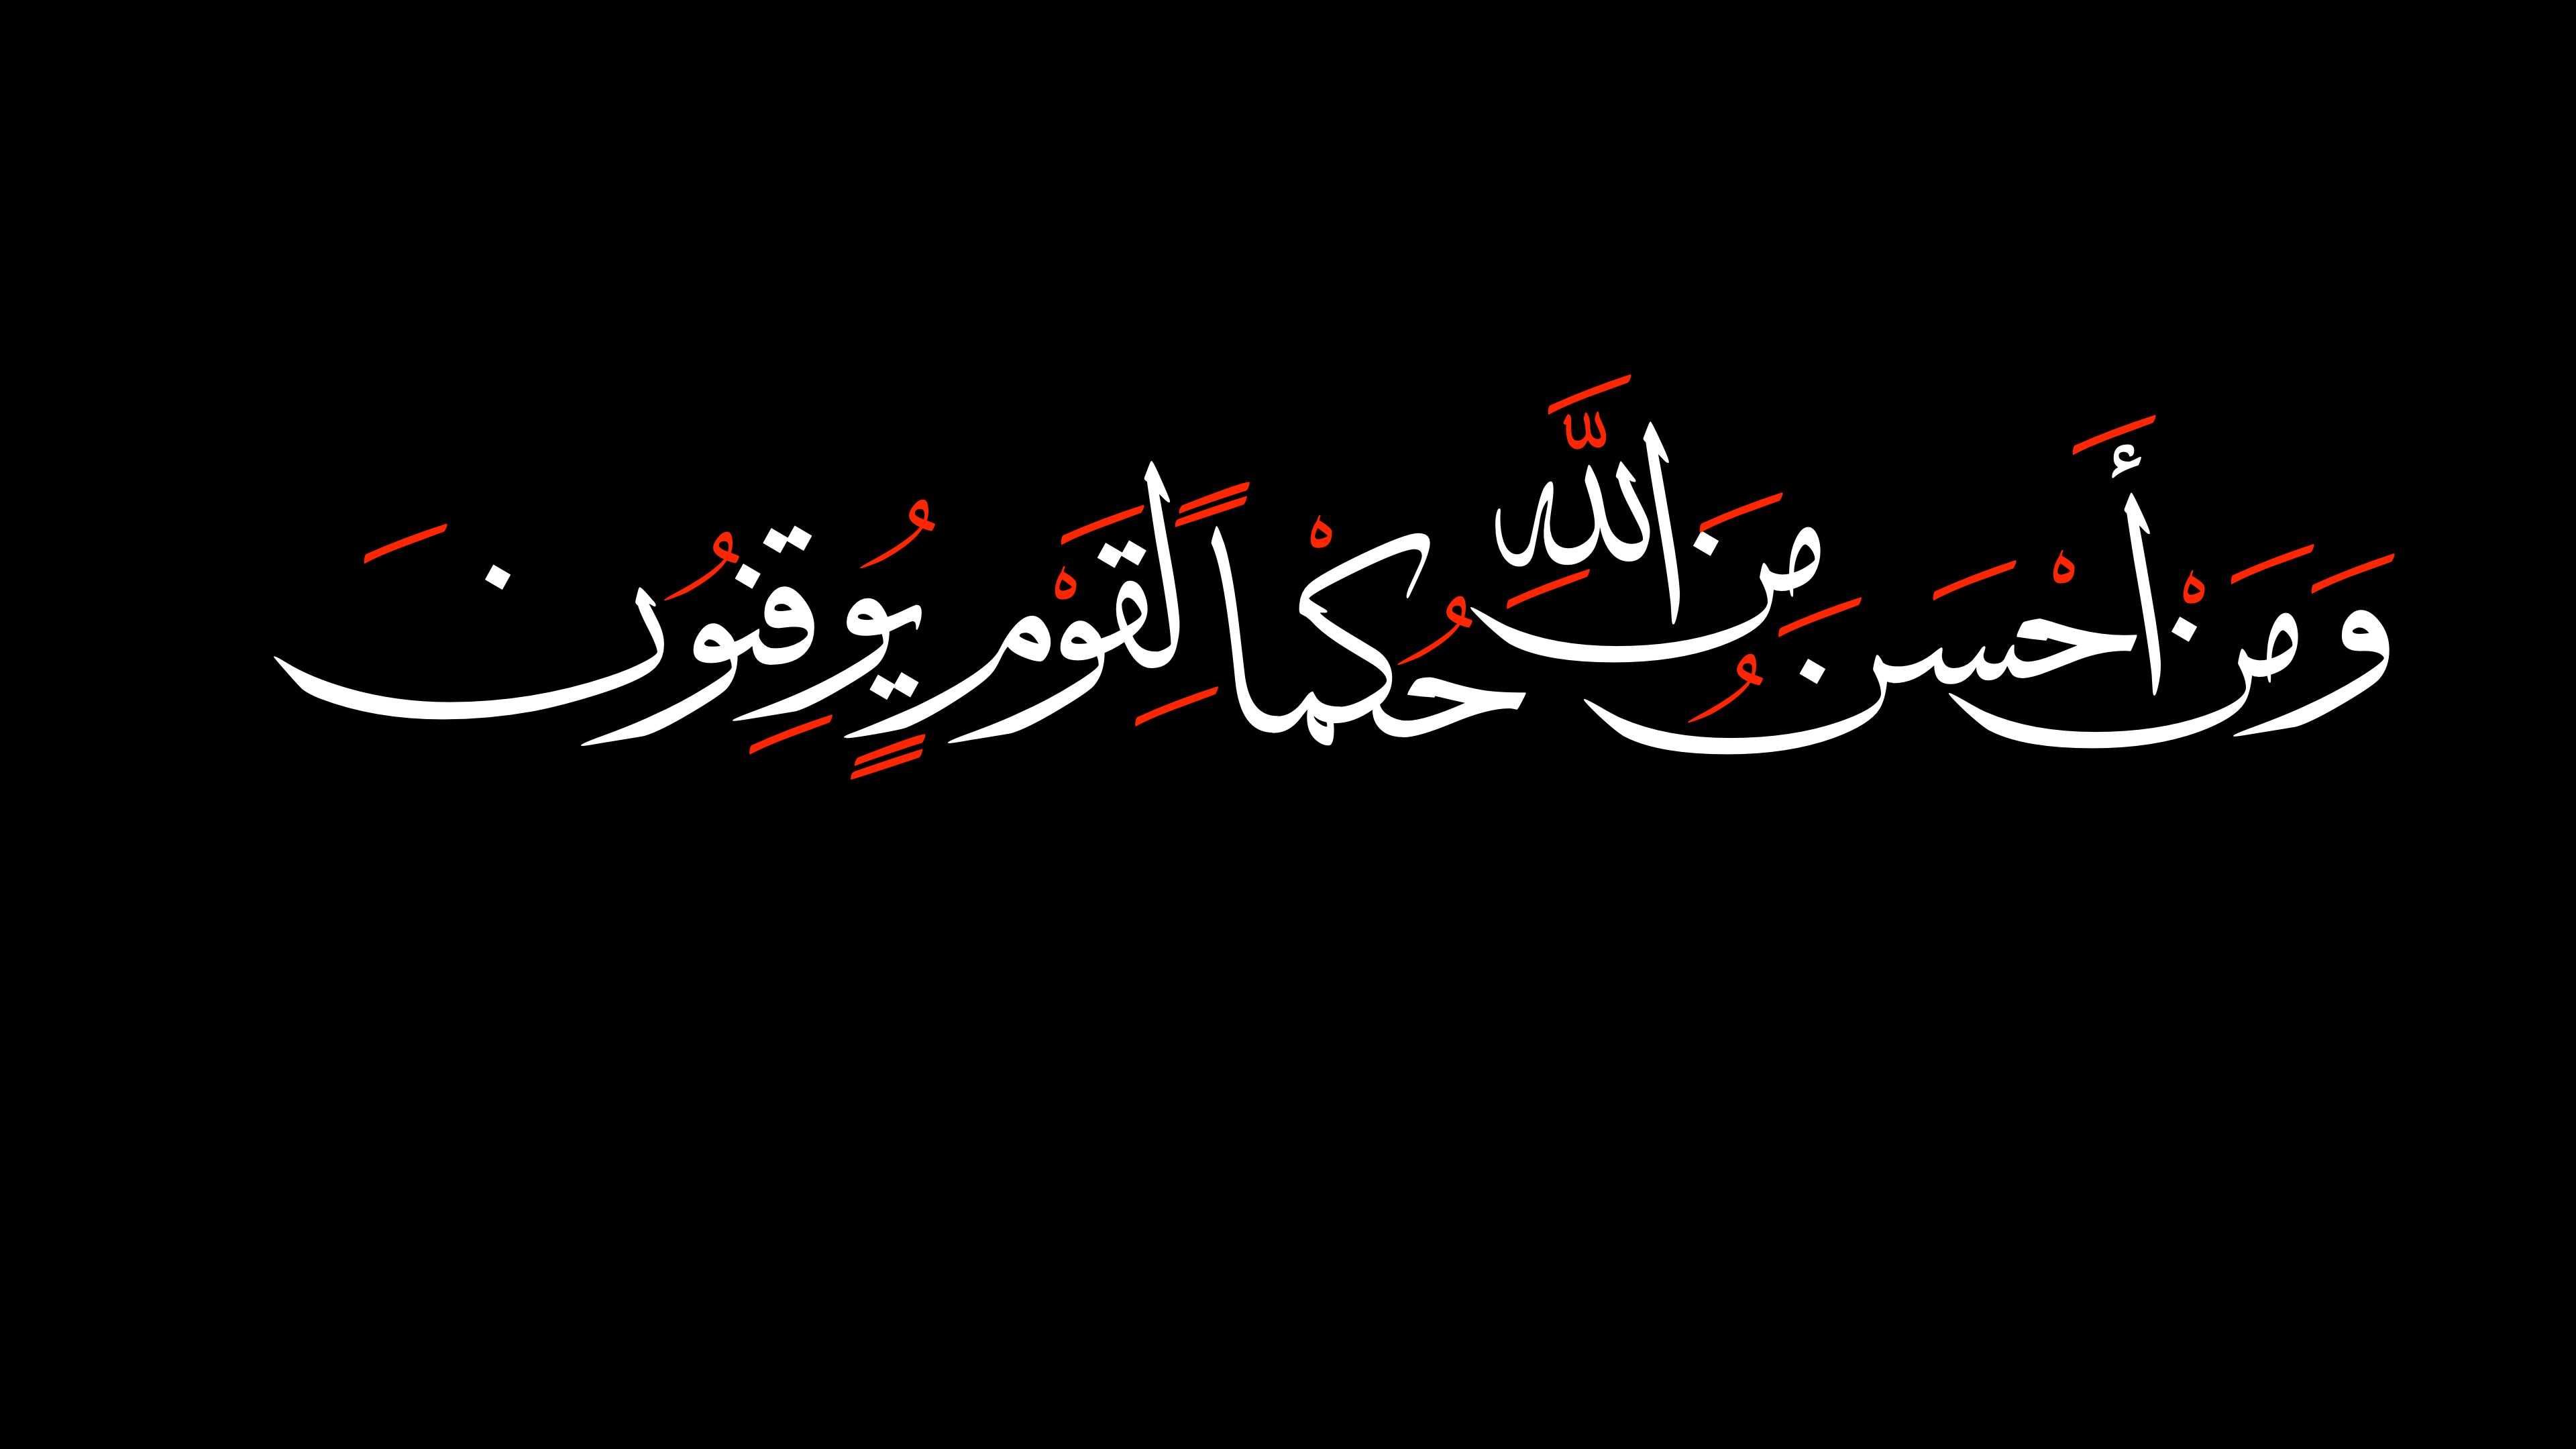 وَمَنْ أَحْسَنَُ مِنَ اللَّهِ حُكْماً لِقَوْمٍ يُوقِنُونَ